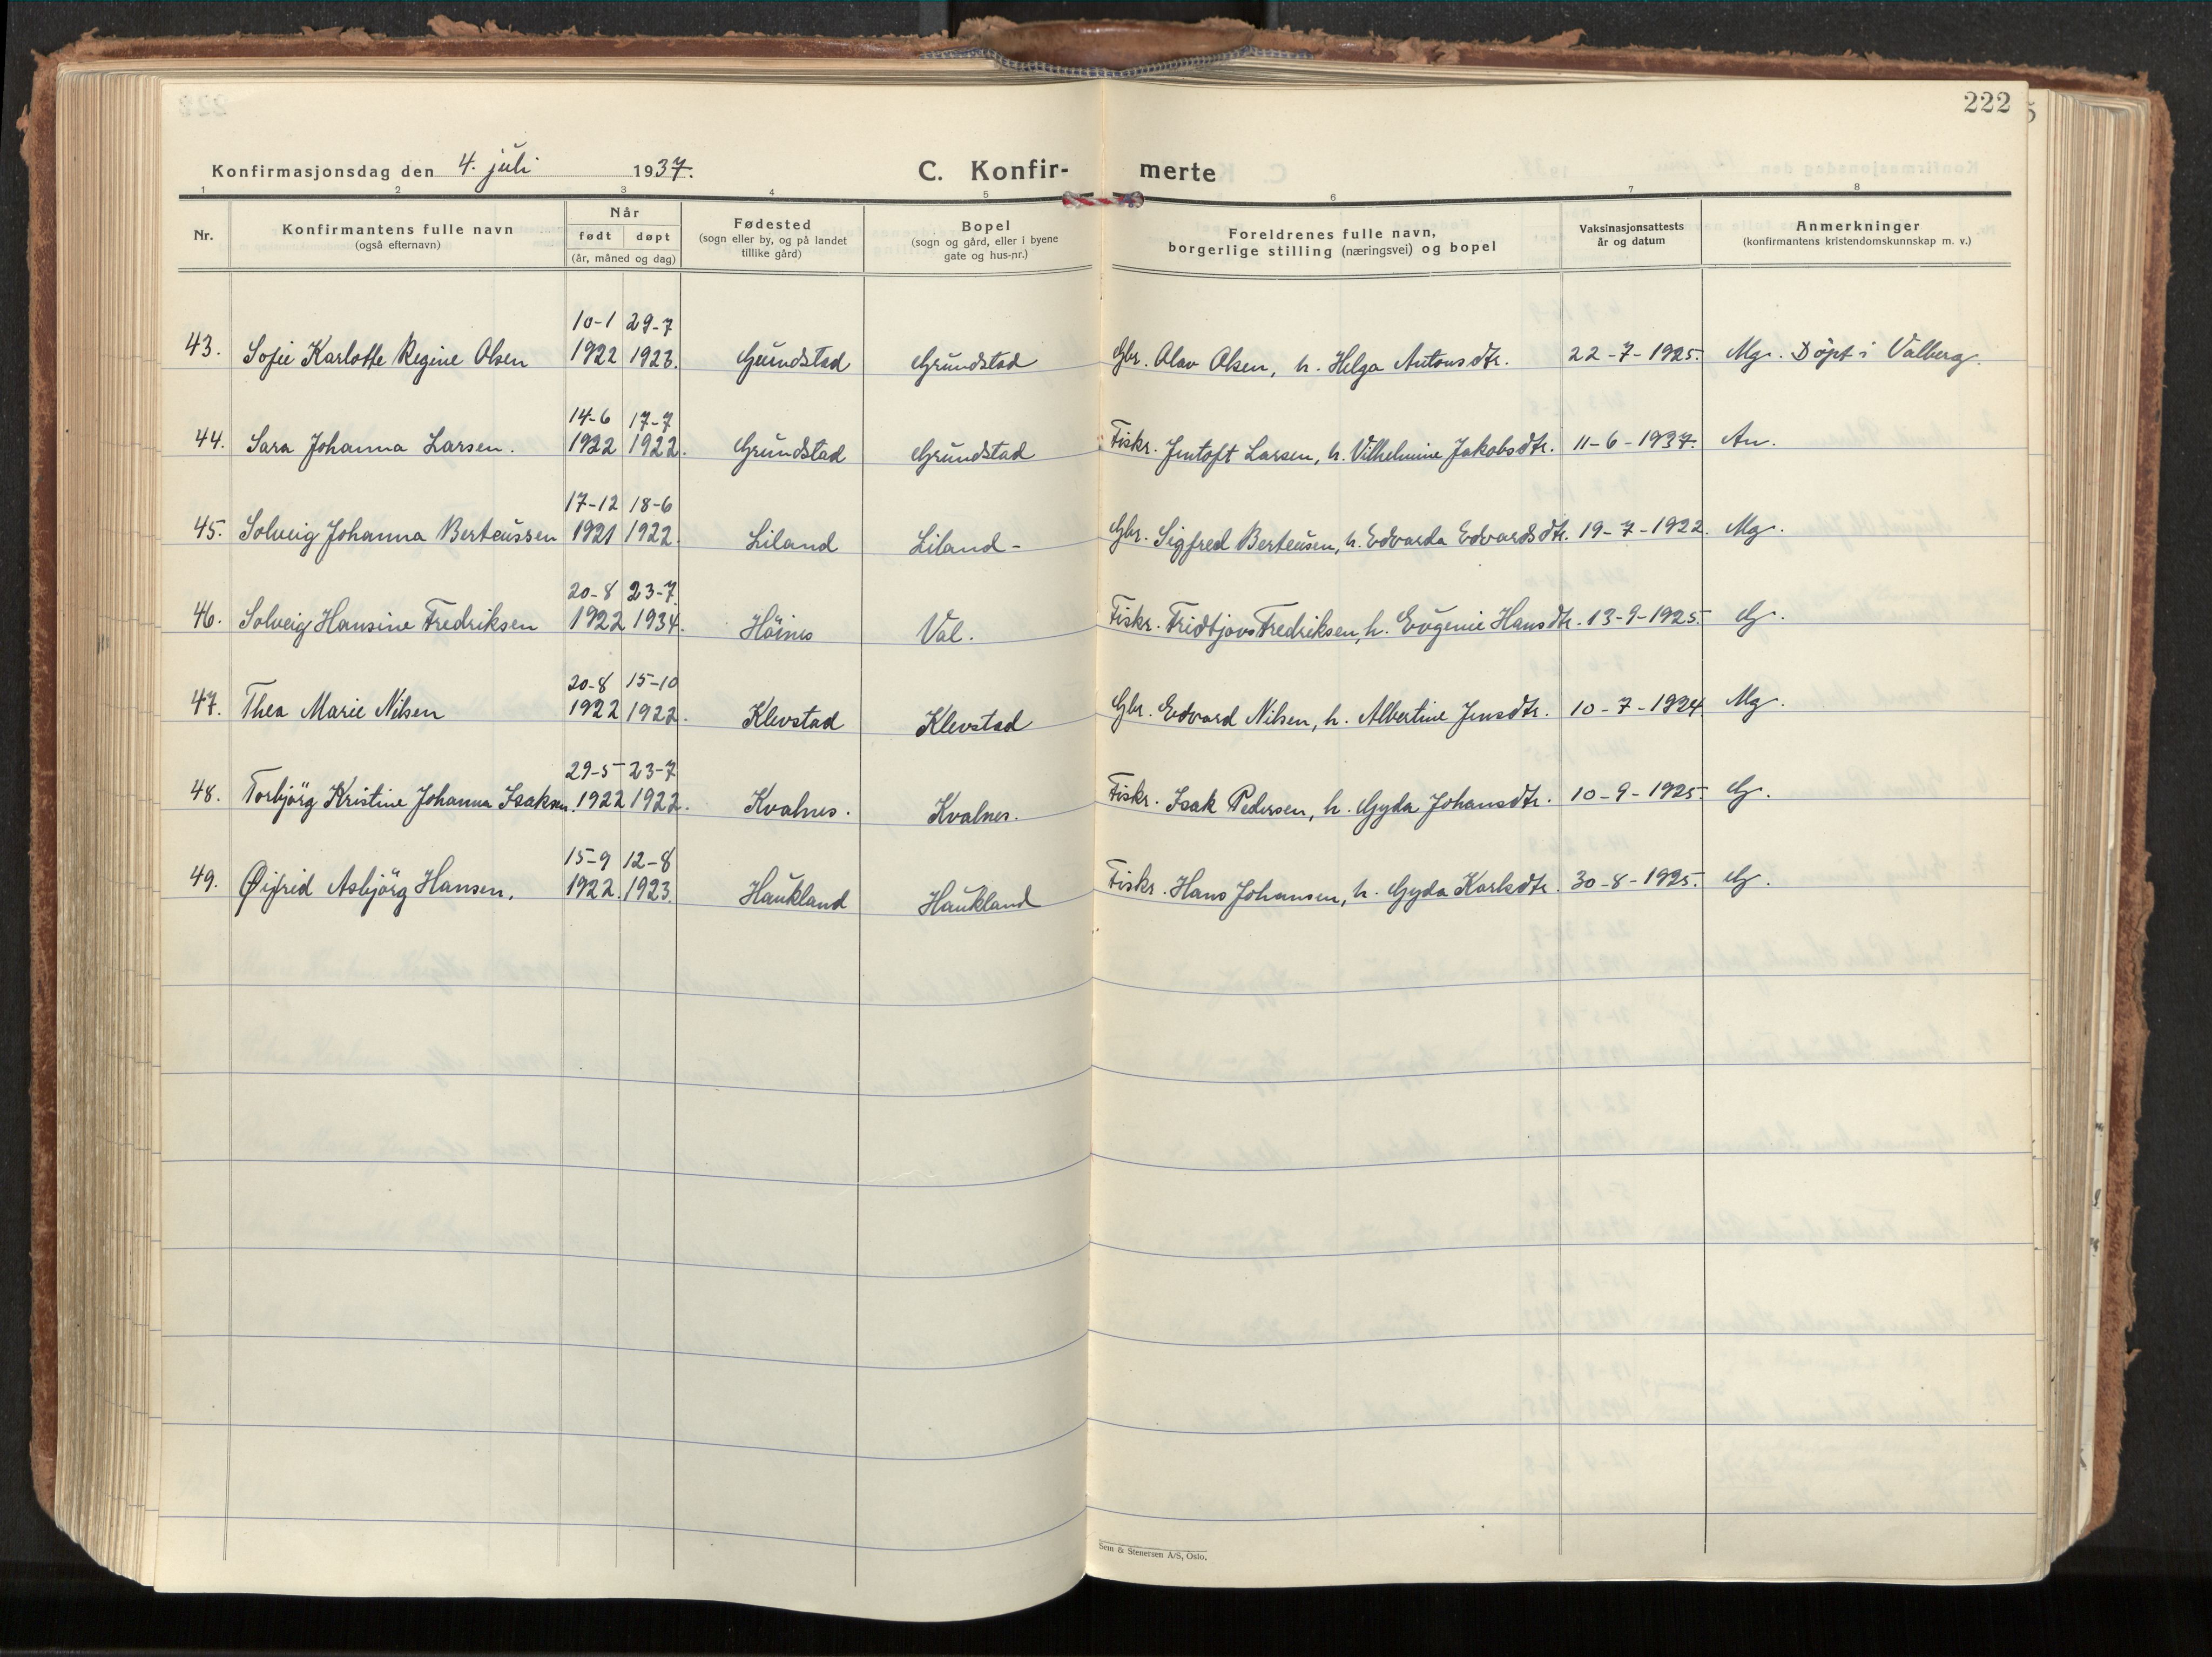 222
Konfirmasjonsdag den 4. juli 1937.
C. Konfir- merte
1 2 3 4 5 6 7 8
Nr.
Konfirmantens fulle navn
(også efternavn)
Når
født døpt
(år, måned og dag)
Fødested
(sogn eller by, og på landet
tillike gård)
Bopel
(sogn og gård, eller i byene
gate og hus-nr.)
Foreldrenes fulle navn,
borgerlige stilling (næringsvei) og bopel
Vaksinasjonsattests
år og datum
Anmerkninger
(konfirmantens kristendomskunnskap m. v.)
10-1 29-7
43. Sofie Karlotte Regine Olsen 1922 1923. Grundstad Grundstad Gbr. Olav Olsen, h. Helga Antonsdtr. 22-7-1925. Mg. Döpt i Valberg.
14-6 17-7
44. Sara Johanna Larsen. 1922 1922. Grundstad Grundstad Fiskr. Jentoft Larsen, h. Vilhelmine Jakobsdtr. 11-6-1937. An.
17-12 18-6
45. Solveig Johanna Berteussen 1921 1922. Liland Liland - Gbr. Sigfred Berteusen, h. Edvarda Edvardsdtr. 19-7-1922. Mg.
20-8 23-7
46. Solveig Hansine Fredriksen 1922 1934. Höines Val. Fiskr. Fridtjovs Fredriksen, h. Evgenie Hansdtr. 13-9-1925. G.
20-8 15-10
47. Thea Marie Nilsen 1922 1922. Klevstad Klevstad Gbr. Edvard Nilsen, h. Albertine Jensdtr. 10-7-1924 Mg.
29-5 23-7
48. Torbjörg Kristine Johanna Isaksen. 1922 1922. Kvalnes. Kvalnes. Fiskr. Isak Pedersen, h. Gyda Johansdtr. 10-9-1925. G.
15-9 12-8
49. Øifrid Asbjörg Hansen. 1922. 1923. Haukland Haukland Fiskr. Hans Johansen, h. Gyda Karlsdtr. 30-8-1925. G.
Sem & Stenersen A/S, Oslo.